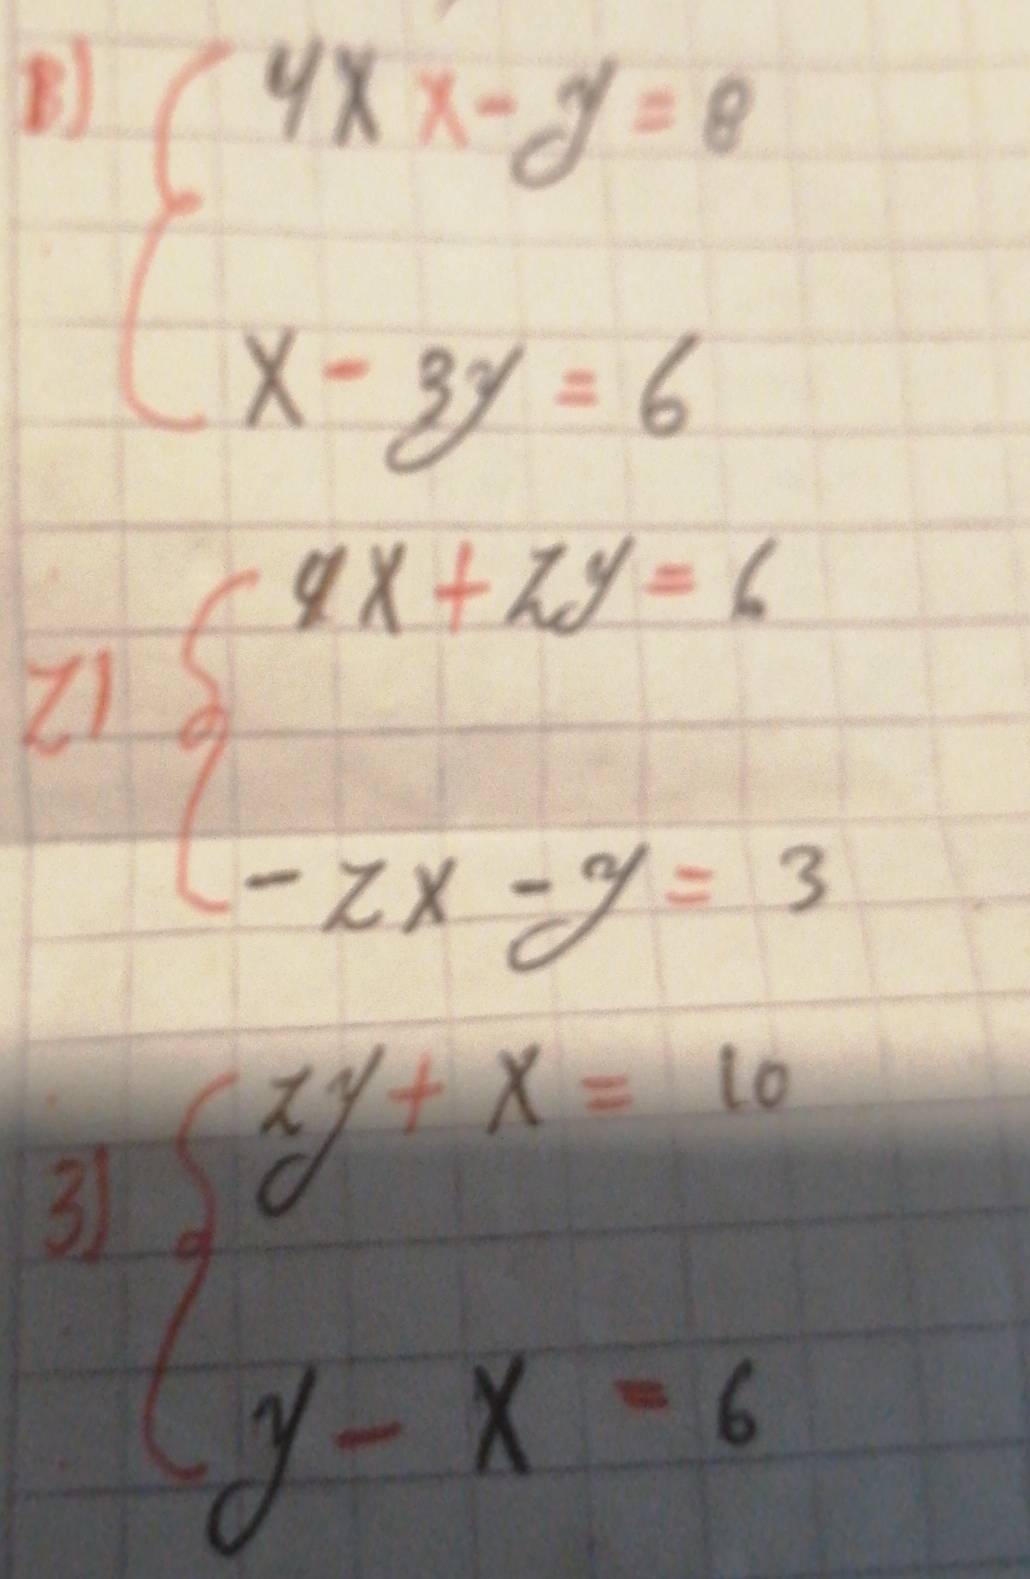 B) { 4x x - y = 8
x - 3y = 6
2) { 4x + 2y = 6
- 2x - y = 3
3) { 2y + x = 10
y - x = 6